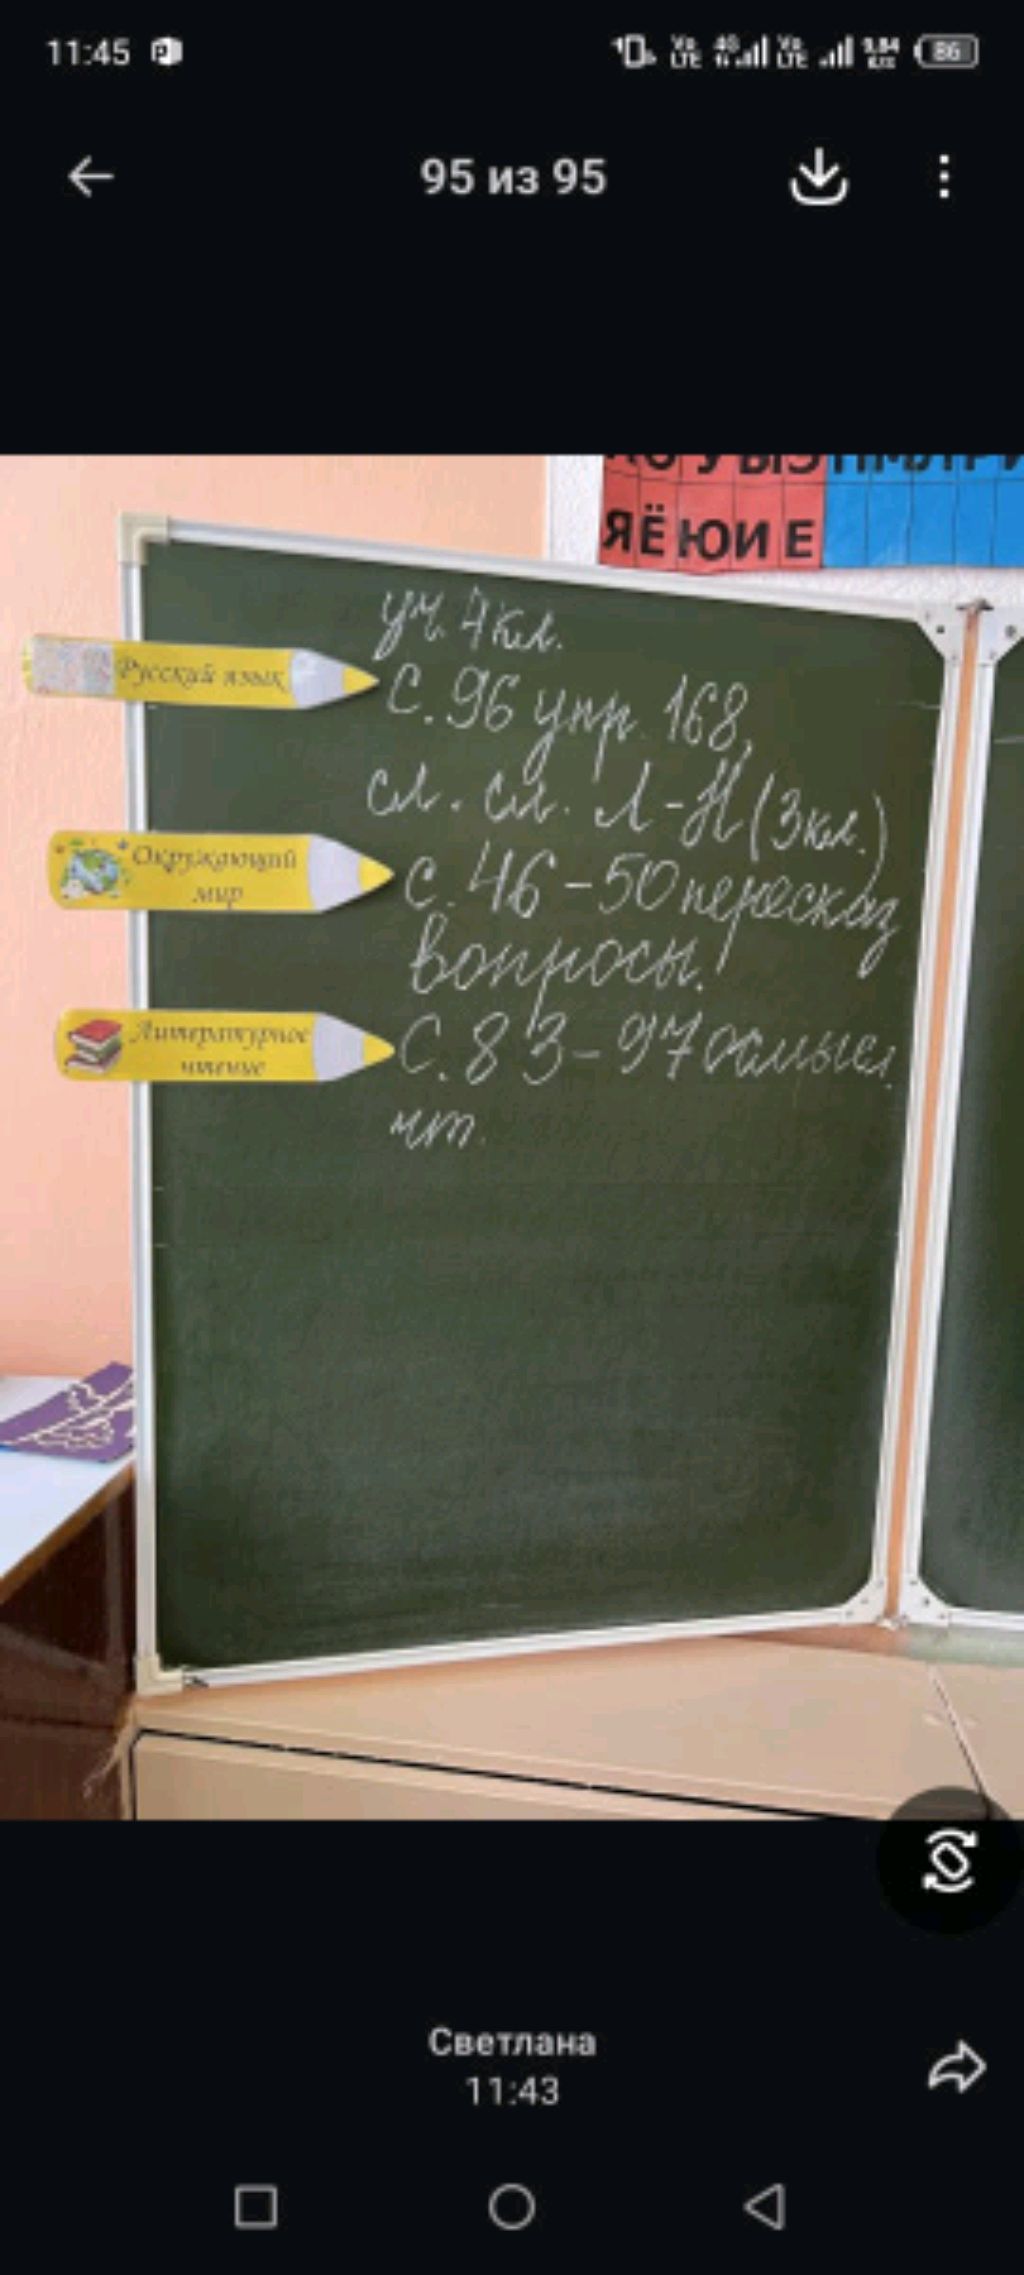 11:45
Vo LTE 4G Vo LTE 86
95 из 95
У Ы Э
Я Ё Ю И Е
уч. 4 кл.
Русский язык
с. 96 упр. 168,
сл. сл. Л-Н (3 кл.)
Окружающий
мир
с. 46-50 пересказ
вопросы.
Литературное
чтение
с. 83-97 осмысл.
чт.
Светлана
11:43